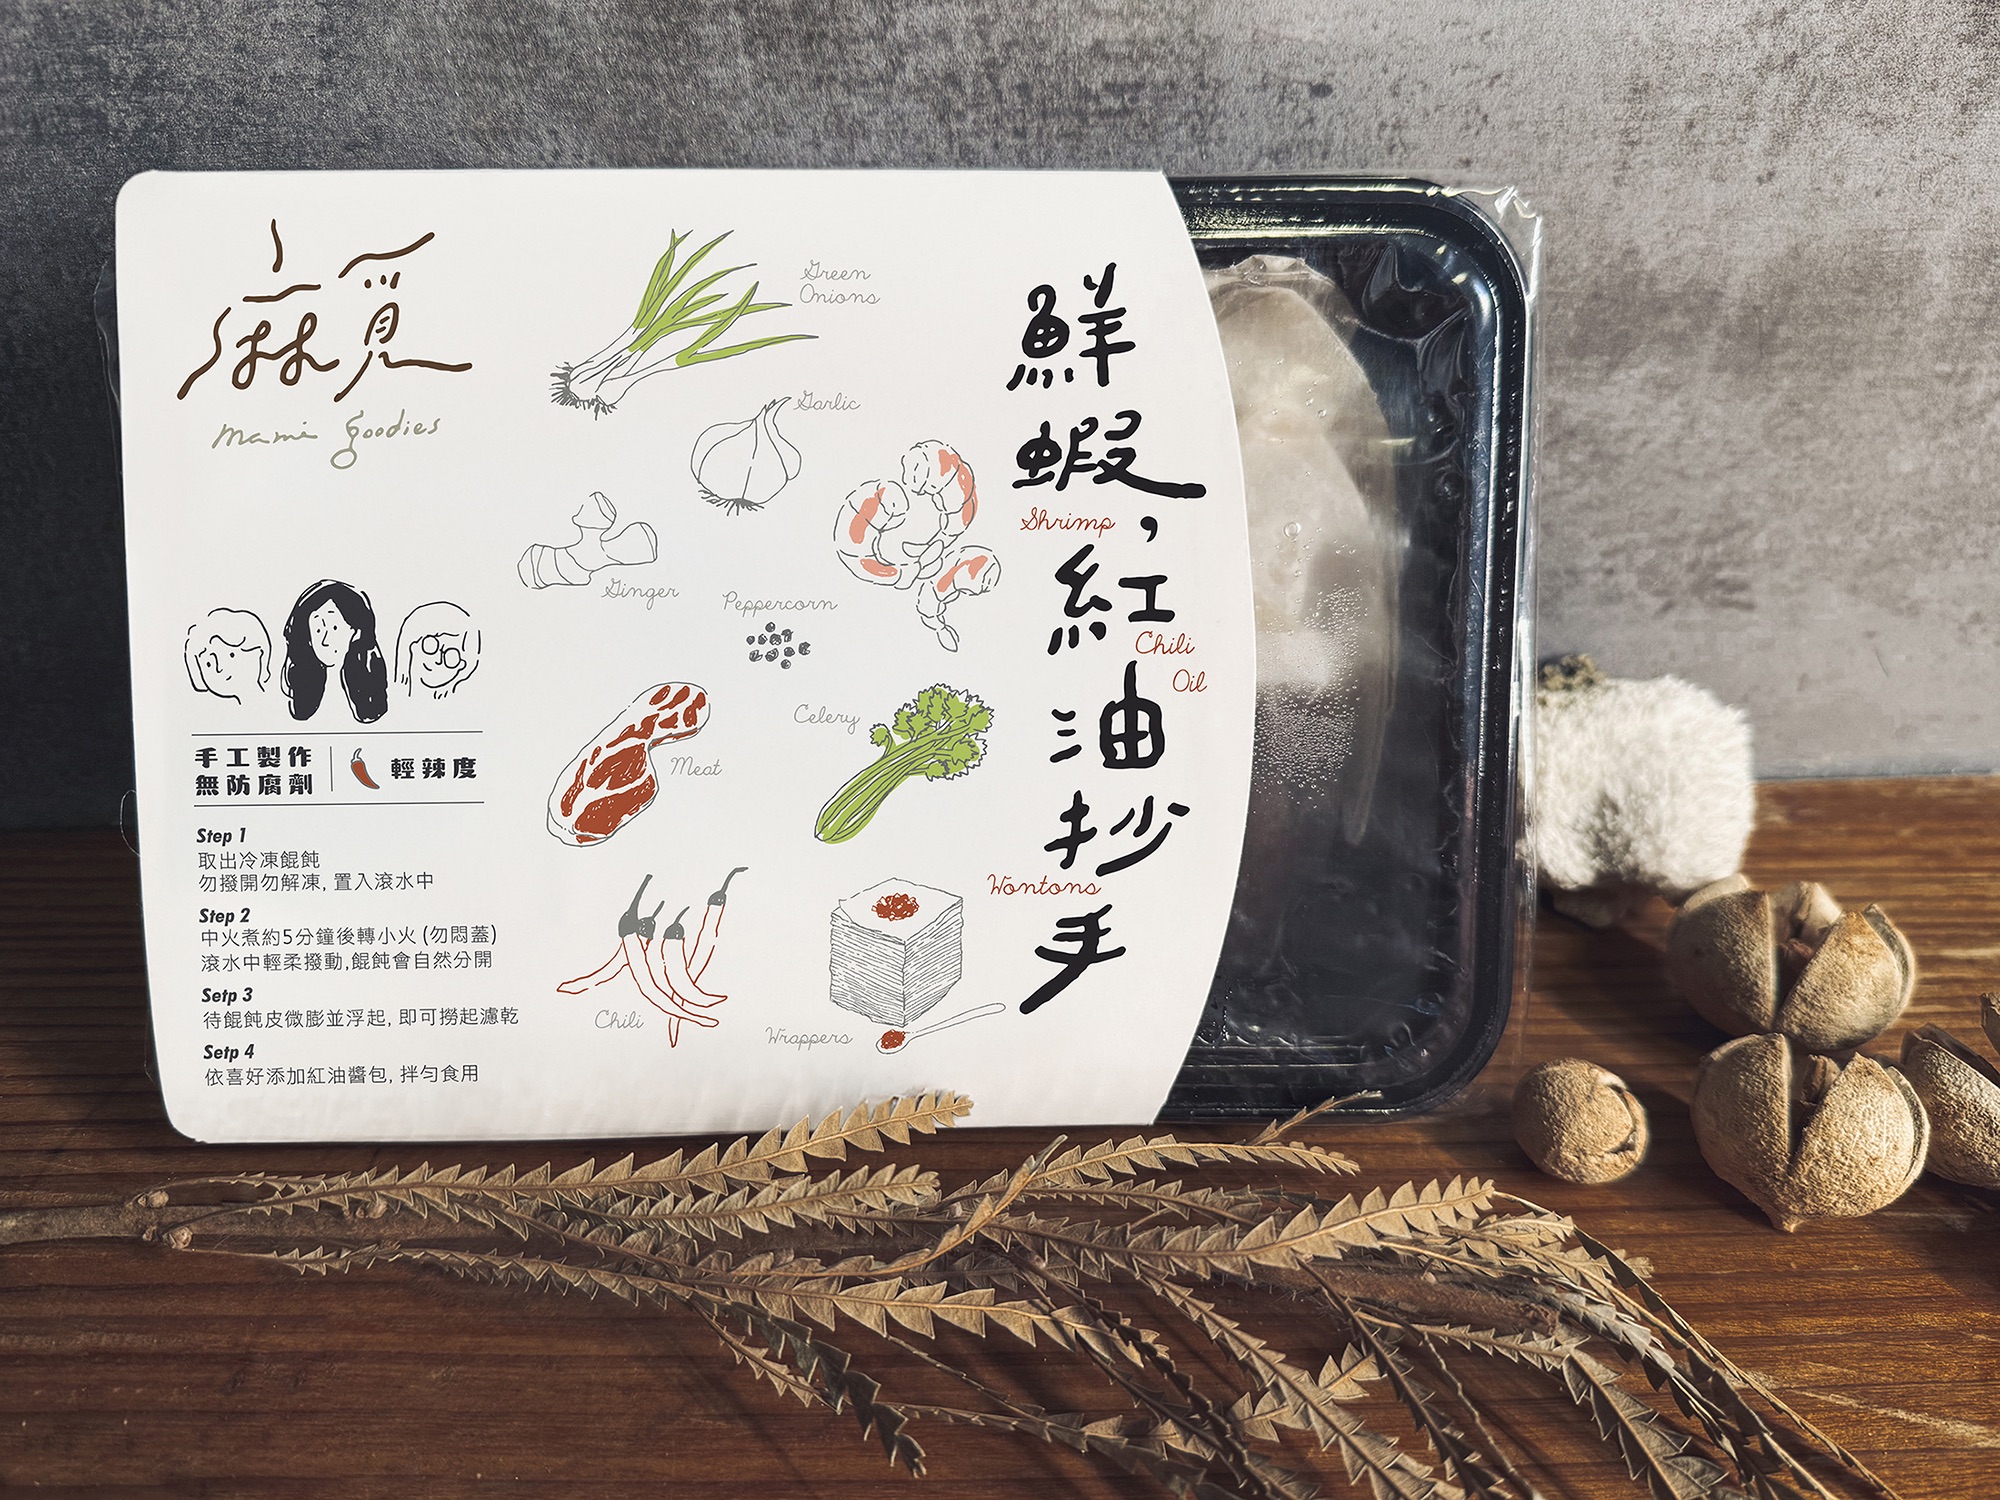 麻覓
mami goodies
手工製作
無防腐劑
輕辣度
Step 1
取出冷凍餛飩
勿撥開勿解凍, 置入滾水中
Step 2
中火煮約5分鐘後轉小火 (勿悶蓋)
滾水中輕柔撥動,餛飩會自然分開
Setp 3
待餛飩皮微膨並浮起, 即可撈起濾乾
Setp 4
依喜好添加紅油醬包, 拌勻食用
Green
Onions
Garlic
Ginger
Peppercorn
Meat
Celery
Chili
Wrappers
鮮蝦,紅油抄手
Shrimp
Chili
Oil
Wontons